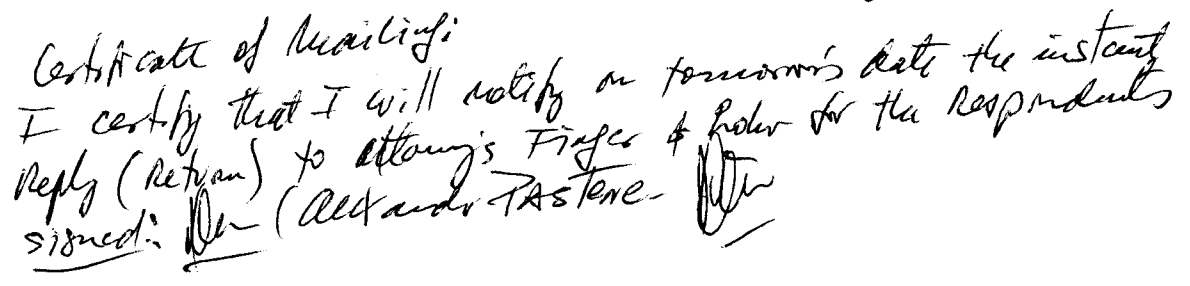 Certificate of Mailing:
I certify that I will notify on tomorrow's date the instant
Reply (Return) to attorneys Finger & for the Respondents
signed: (Alexandr PASTERE-